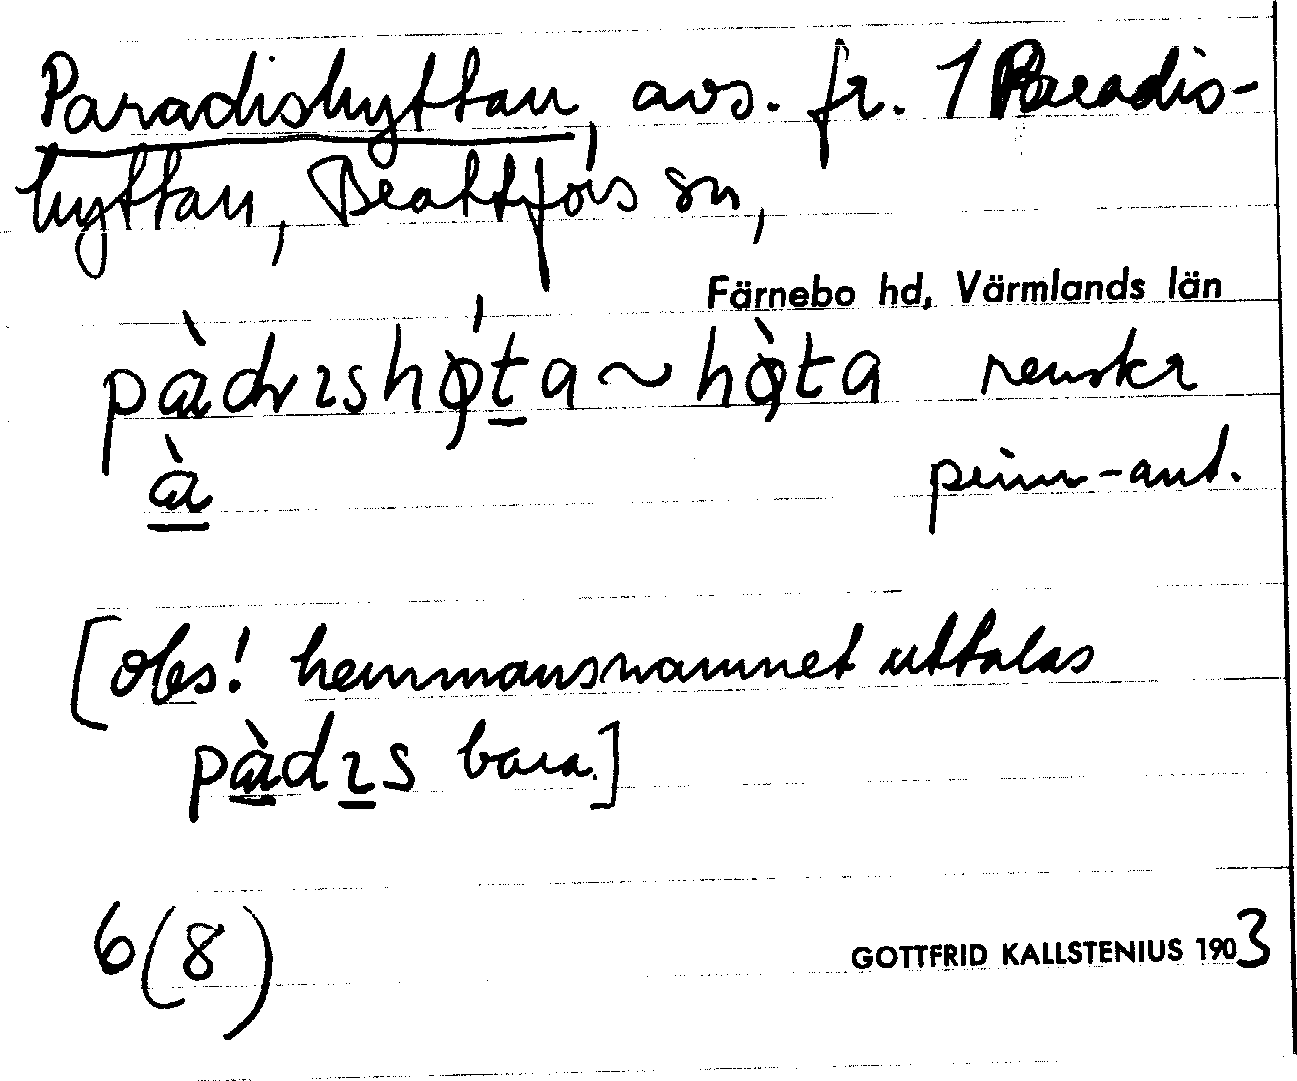 Paradishyttan, avs. fr. 1 Paradis-
hyttan, Beattfors sn,
Färnebo hd, Värmlands län
pàdısho̩ta ~ hòta renskr
à penn-ant.
[obs! hemmansnamnet uttalas
pàdıs bara.]
6(8) GOTTFRID KALLSTENIUS 1903